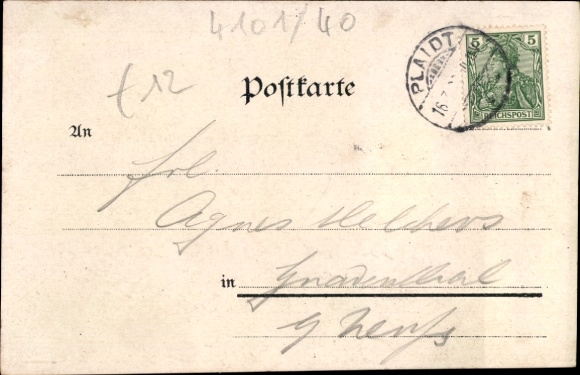 4101/40
€12
Postkarte
PLAIDT
16.7.
5 5
REICHSPOST
An
Frl.
Agnes Melchers
in Gnadenthal